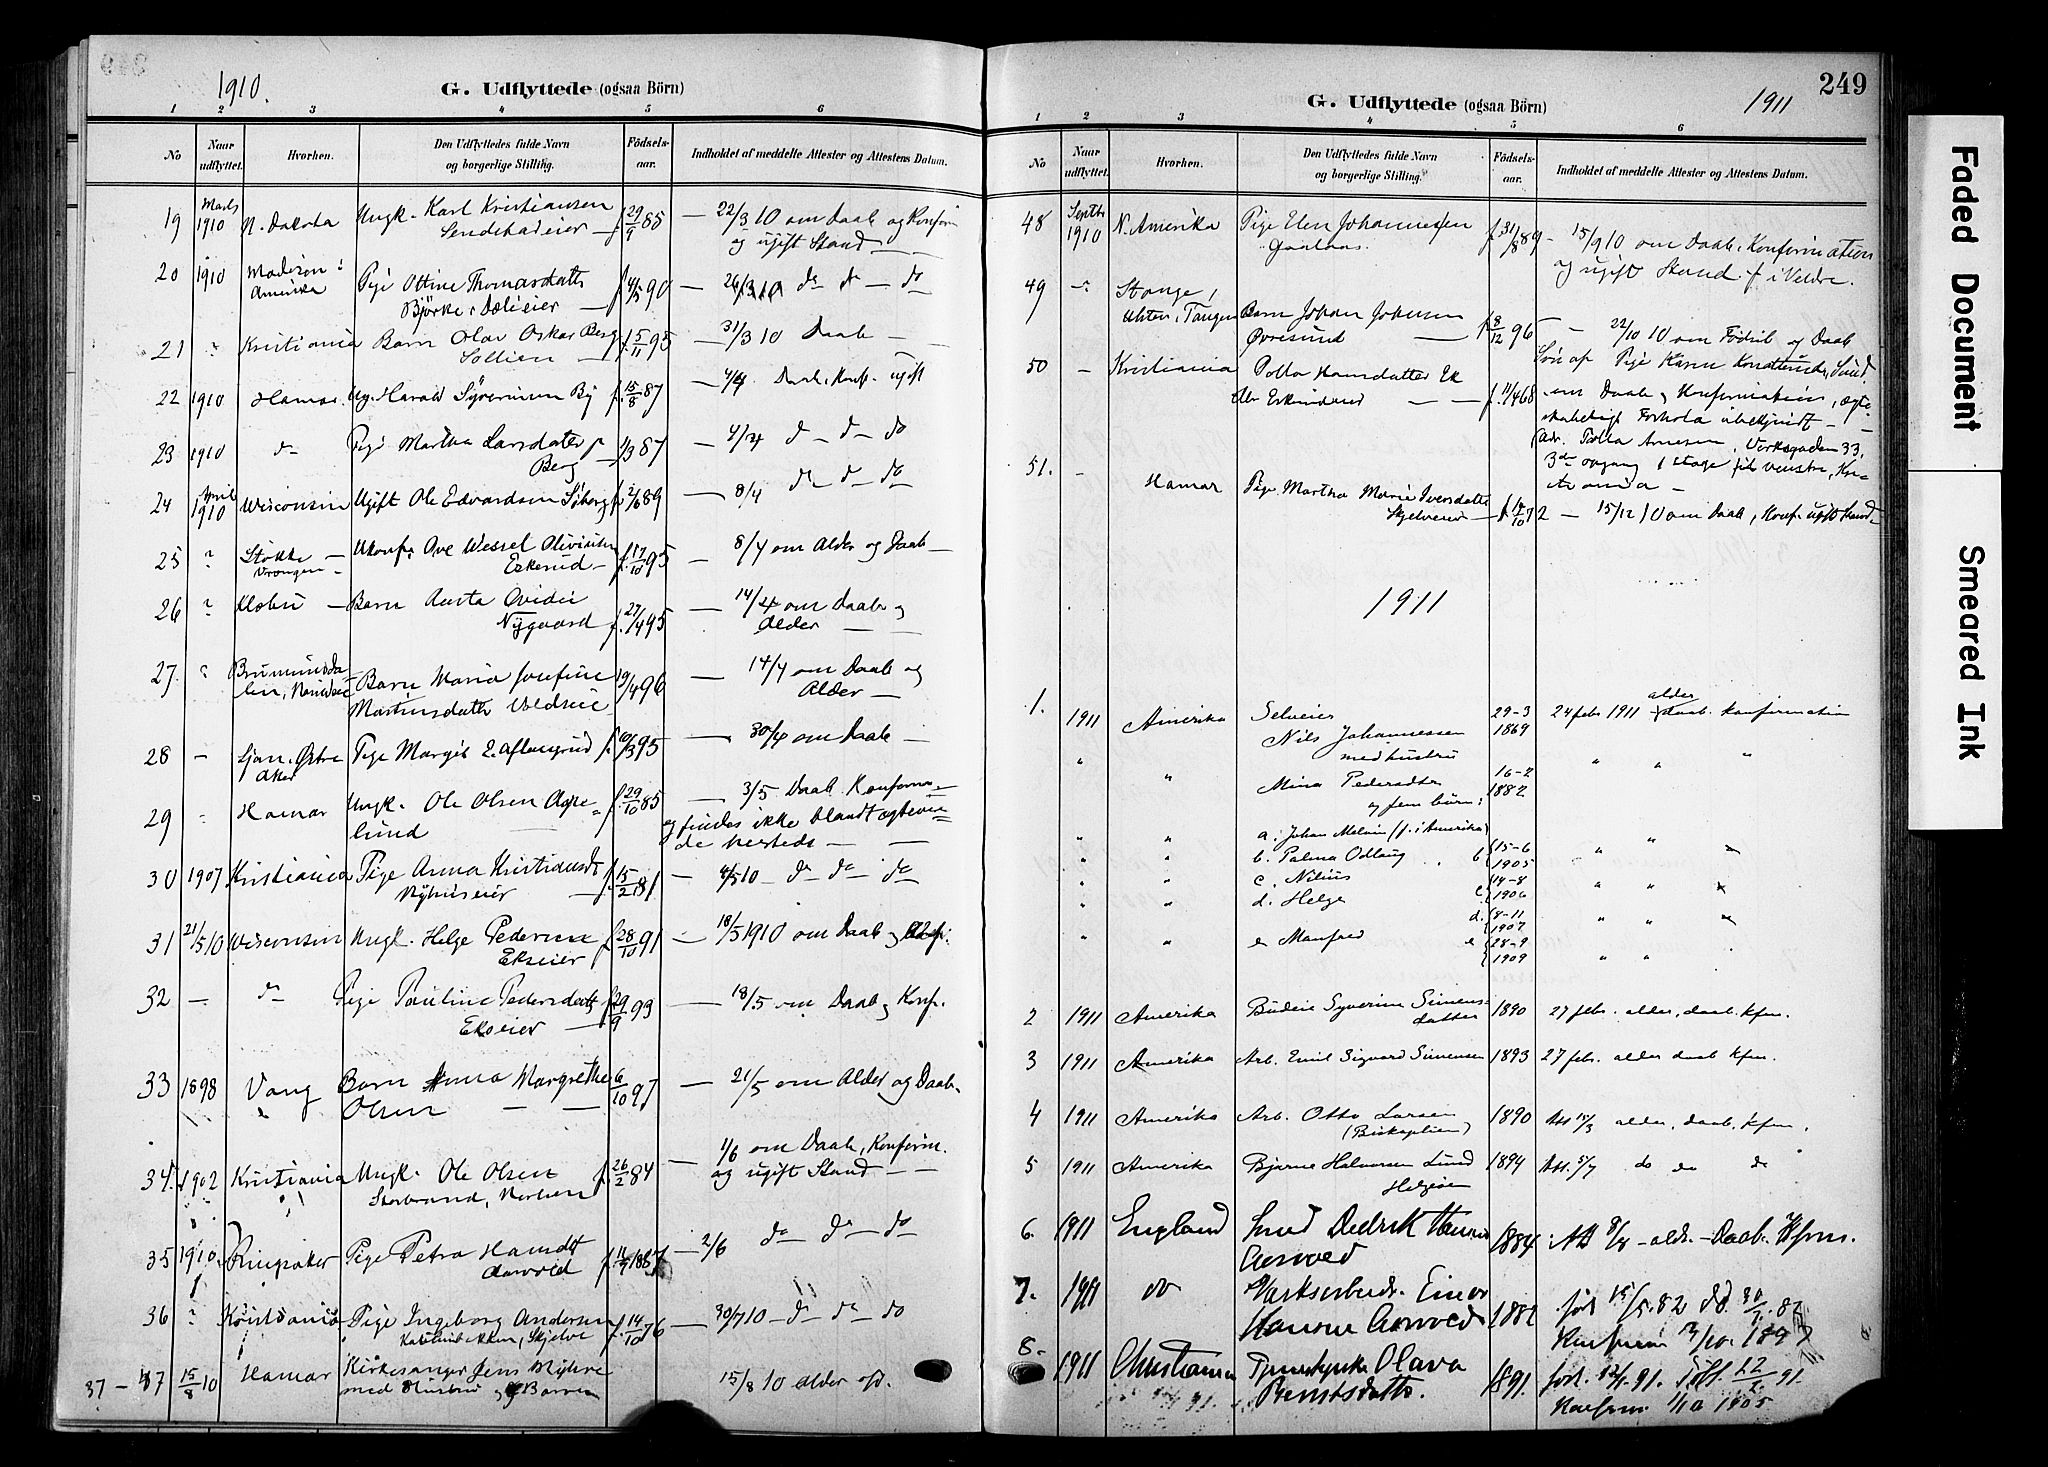 1910.
G. Udflyttede (ogsaa Börn)
1 2 3 4 5 6
No
Naar udflyttet.
Hvorhen.
Den Udflyttedes fulde Navn og borgerlige Stilling.
Födsels-aar.
Indholdet af meddelte Attester og Attestens Datum.
19 Marts 1910 N. Dakota Ungk. Karl Kristiansen f. 29/9 85 — 22/3 10 om Daab og Konfirm
og ugift Stand —
20 1910 Madison i Amerika Pige Ottine Thomasdatter f 4/5 90 — 26/3 10 do do — do
Björke, Dælieier —
21 " Kristiania Barn Olav Oskar Berg f. 5/11 95 — 31/3 10 Daab —
Sollien —
22 1910 Hamar. Ug. Harald Syversen By f. 15/8 87 — 4/4 Daab, Konf. ugift
23 1910 do Pige Martha Larsdatter f 1/3 87 — 4/4 do — do — do
Berg —
24 April 1910 Wisconsin Ugift Ole Edvardsen Siberg f 2/6 89 — 8/4 do — do — do
25 " Stokke — Ukonf. Ove Wessel f. 17/10 95 — 8/4 om Alder og Daab —
Ekerud —
26 " — Barn f. 27/4 95 — 14/4 om Daab og
Nygaard Alder —
27. " Brumunddalen, Barn Maria Josefine 19/4 96 — 14/4 om Daab og
Martinsdatter Alder —
28 — Ljan. Östre Aker Pige Margit E. f. 10/3 95 — 30/4 om Daab —
29 " Hamar Ungk. Ole Olsen f. 29/10 85 — 3/5 Daab Konform=
lund og findes ikke blandt
de herteds —
30 1907 Kristiania Pige Anna Kristiansdt f. 15/2 81 — 4/5 10 — do do do
Nyhuseier —
31 21/5 10 Wisconsin Ungk. Helge Pedersen f 28/10 91 — 18/5 1910 om Daab og Konf.
Ekeeier
32 — do Pige Pauline Pedersdatt f 29/9 93 — 18/5 om Daab og Konf.
Ekeeier —
33 1898 Vang Barn Anna Margrethe 6/10 97 — 21/5 om Alder og Daab.
Olsen —
34. 1902 Kristiania Ungk. Ole Olsen f. 26/2 84 — 1/6 om Daab, Konform.
Storbrand, og ugift Stand —
35 1910 Ringsaker Pige Petra Hansdt f. 1887 — 2/6 do — do — do
Aasvold
36 " Kristiania Pige Ingeborg Andersen f. 14/10 76 — 30/7 10 — do — do do
Skjelve
37 – 47 15/8 10 Hamar Kirkesanger Jens Myhre 15/8 10 alder osv.
med Hustru og 9 Barn
249
G. Udflyttede (ogsaa Börn)
1911
1 2 3 4 5 6
No
Naar udflyttet.
Hvorhen.
Den Udflyttedes fulde Navn og borgerlige Stilling.
Födsels-aar.
Indholdet af meddelte Attester og Attestens Datum.
48 Septbr 1910 N. Amerika Pige Elen Johannessen f. 31/8 89 — 15/9 10 om Daab, Konformation
og ugift Stand. f i Veldre.
49 — " Stange, Barn Johan Johansen f 8/12 96 — 22/10 10 om Födsel og Daab
Tangen Øvresund — Sön af Pige Karen
50 — Kristiania Polla Hansdatter Ek f. 11/4 68 om Daab og Konformation, ægte-
skabeligt Forhold ubekjendt —
Adr. Polla Arnesen, Verksgaden 33,
3de opgang 1 etage til venstre, Kri-
stiania —
51. — Hamar Pige Martha Marie Iversdatter f 14/10 72 — 15/12 10 om Daab, Konf. ugift Stand
1911
1. 1911 Amerika Selveier 29-3 1869 24 febr 1911 alder daab. konfirmation
Nils Johannessen
med hustru
" " Mina Pedersdtr 16-2 1882 " " "
og fem börn:
" " a. Johan Melvin (f. i Amerika)
" " b. Palma Odlaug b {15-6 1905 " " "
" " c. Nilius c. {14-8 1906 " " "
" " d. Helge d. {8-11 1907 " " "
" " e Manfred e {28-9 1909 " "
2 1911 Amerika Budeie Syverine Simens- 1890 27 febr. alder, daab. kfm.
datter
3 1911 Amerika Arb. Emil Sigvard Simensen 1893 27 feb. alder daab kfm.
4 1911 Amerika Arb. Otto Larsen 1890 Att 15/3 alder, daab, kfm.
(Biskoplien)
5 1911 Amerika Bjarne Halvorsen Lund 1894 Att. 5/7 do do do
Helgöen
6. 1911 England Smed Dedrik Hansen 1884 Att 8/8 – aldr. – Daab. Kfm.
Aasvold
7. 1911 do Værksarbeidr. Einar 1882 født 15/5. 82
Hansen Aasvold
8. 1911 Christiania Tjenestepike Olava 1891. født. 12/1. 91. Döbt 22/2. 91.
Berntsdatter. Konfirm 1/10 1905
Faded Document
Smeared Ink